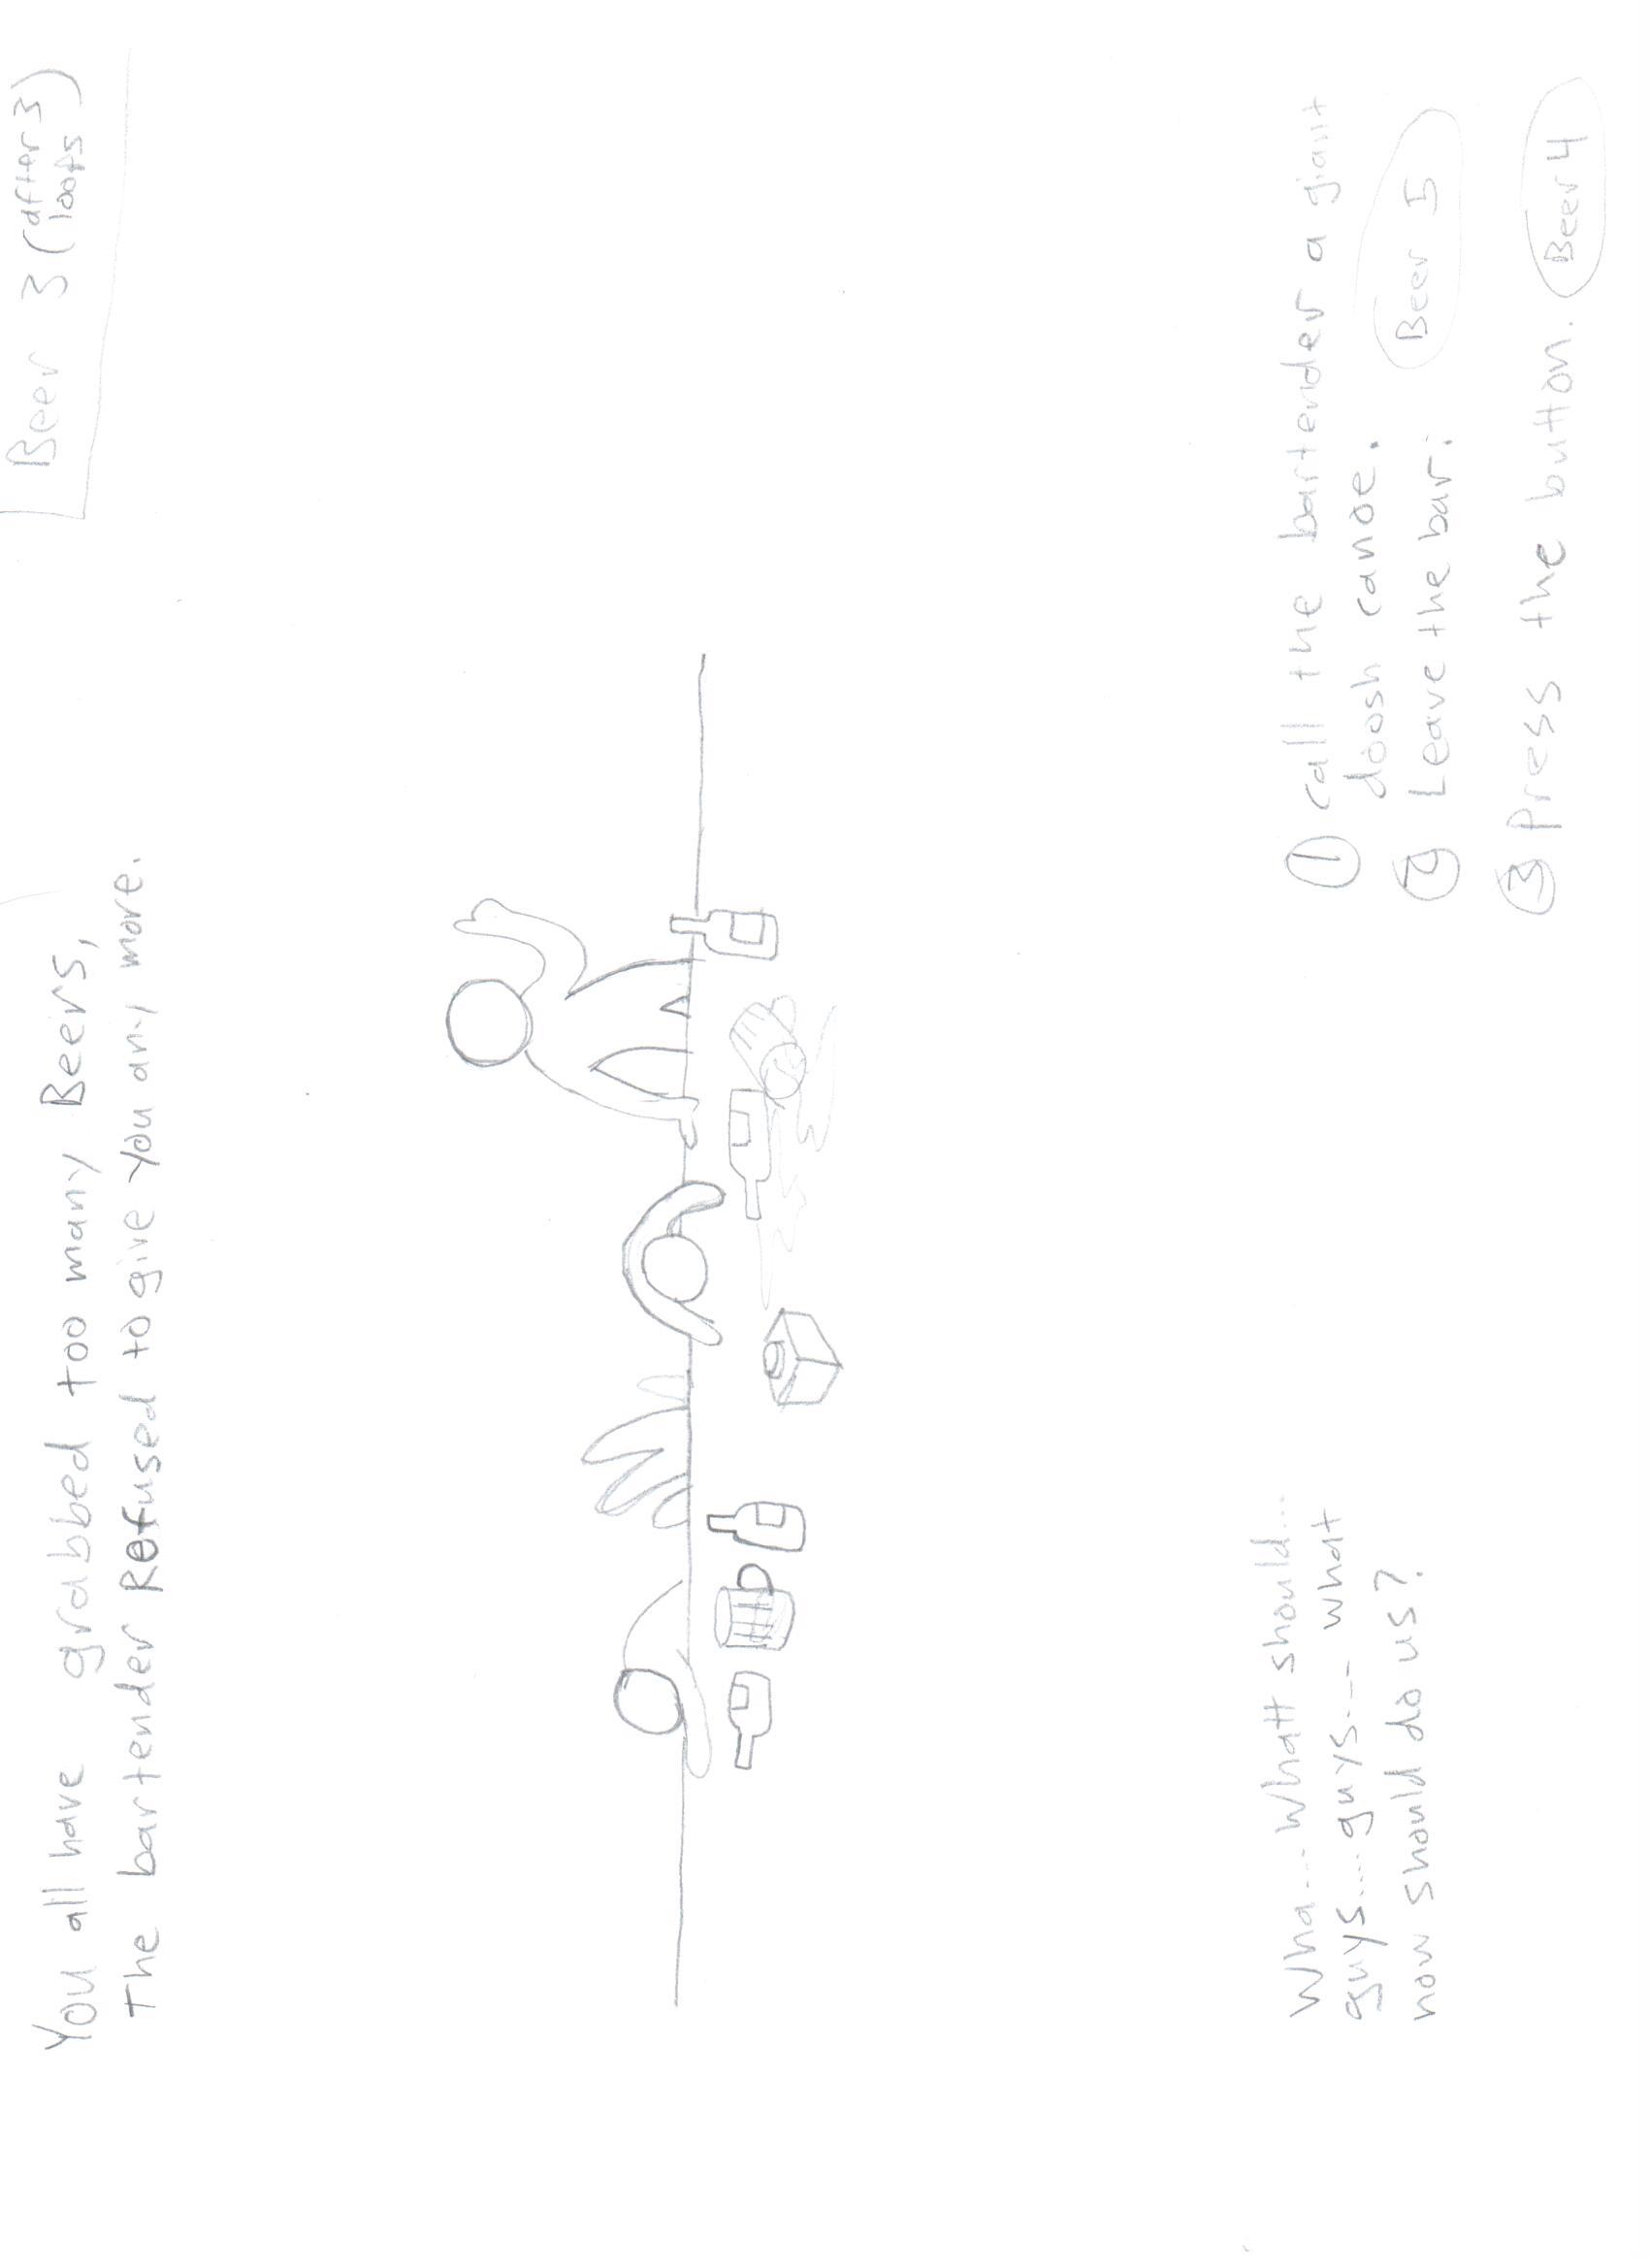 Beer 3 (after 3
loops)
You all have grabbed too many Beers,
The bartender Refused to give you any more.
Wha... whatt should...
guys.... guys... what
now should do us?
① call the bartender a giant
doosh canoe.
② Leave the bar: Beer 5
③ Press the button. Beer 4